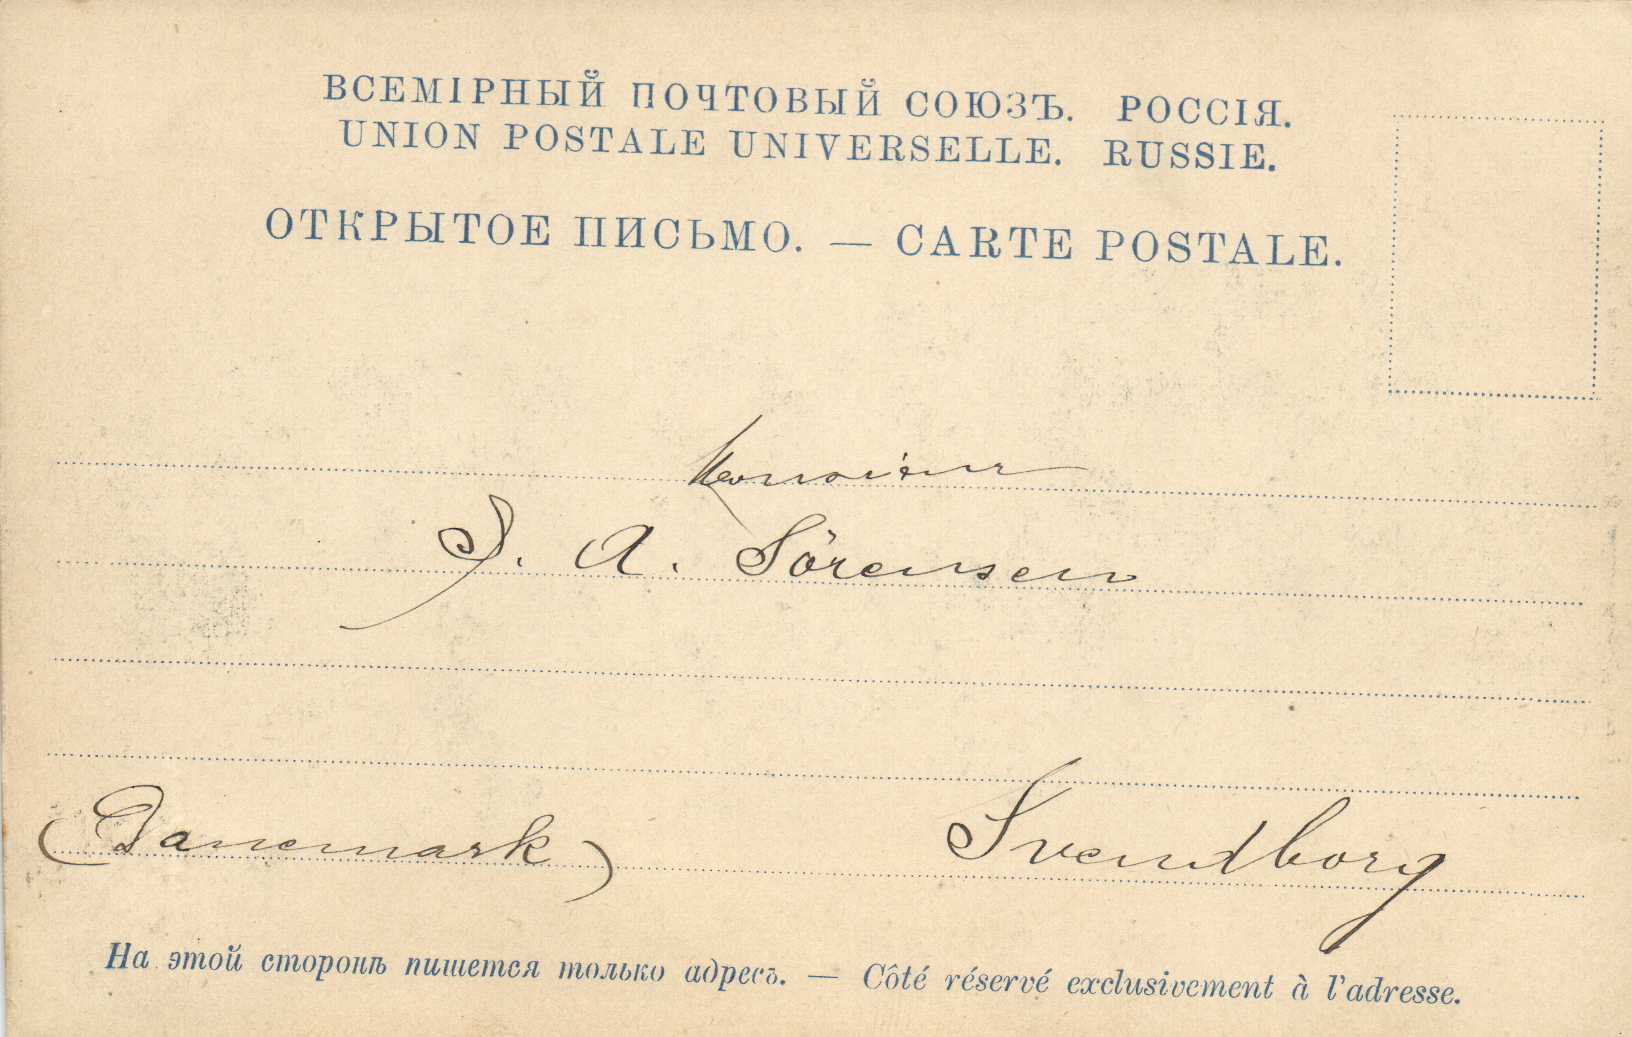 ВСЕМІРНЫЙ ПОЧТОВЫЙ СОЮЗЪ. РОССІЯ.
UNION POSTALE UNIVERSELLE. RUSSIE.
ОТКРЫТОЕ ПИСЬМО. — CARTE POSTALE.
Monsieur
J. A. Sörensen
(Danemark) Svendborg
На этой сторонѣ пишется только адресъ. — Côté réservé exclusivement à l'adresse.